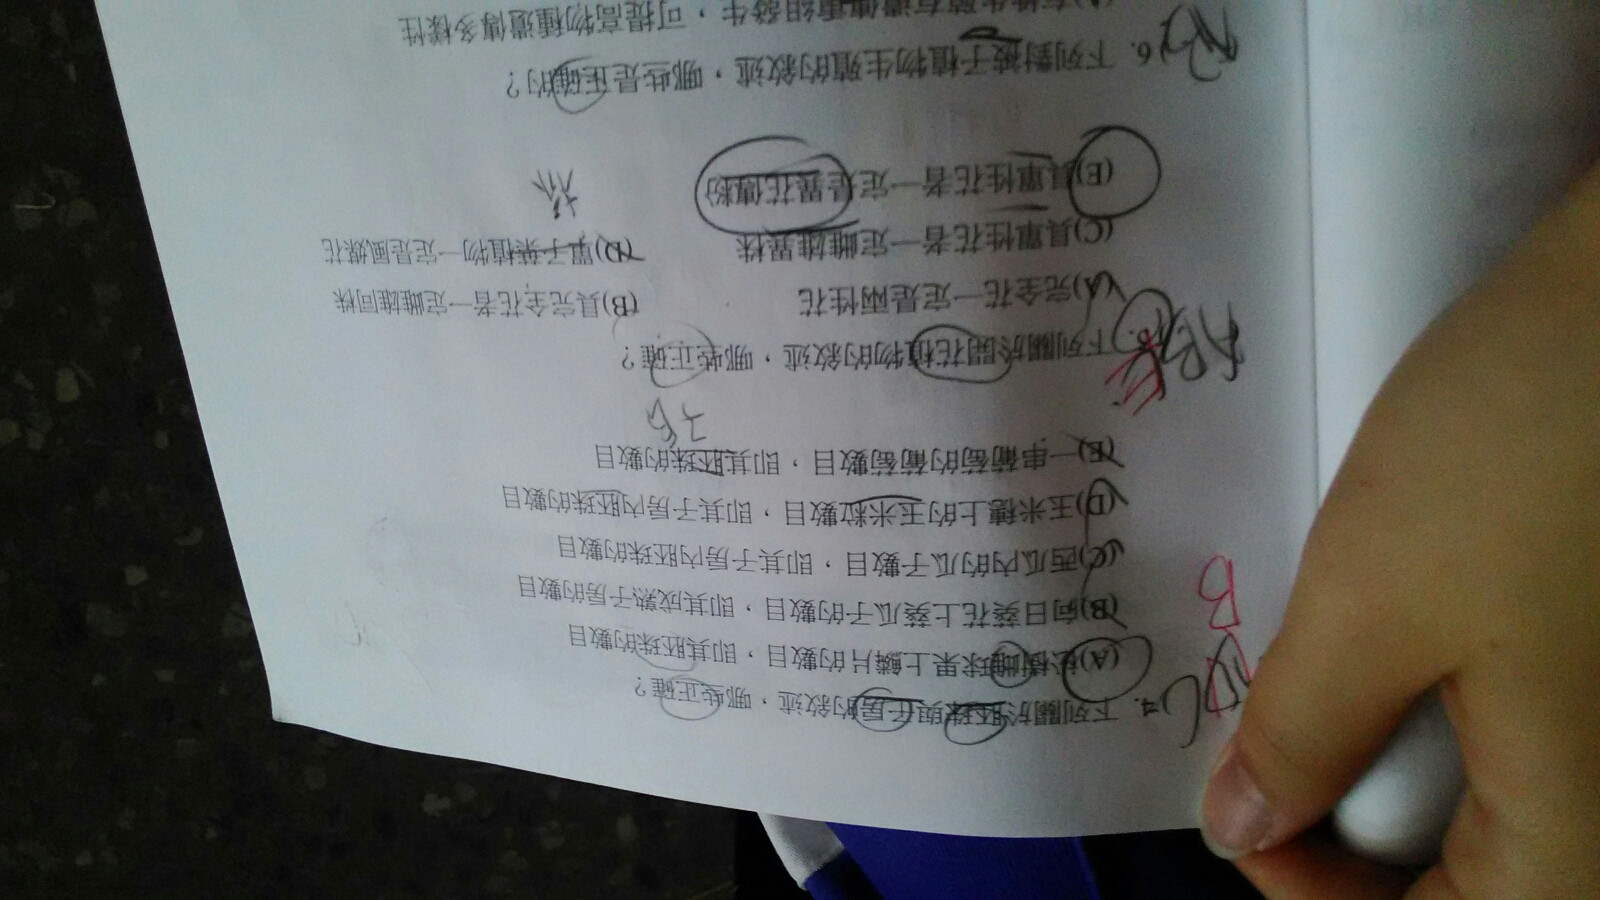 4. 下列關於胚珠與子房的敘述，哪些正確？
(A)松樹雌球果上鱗片的數目，即其胚珠的數目
(B)向日葵花上葵瓜子的數目，即其成熟子房的數目
(C)西瓜內的瓜子數目，即其子房內胚珠的數目
(D)玉米穗上的玉米粒數目，即其子房內胚珠的數目
(E)一串葡萄的葡萄數目，即其胚珠的數目
子房
B
5. 下列關於開花植物的敘述，哪些正確？
ABE
(A)完全花一定是兩性花 (B)具完全花者一定雌雄同株
(C)具單性花者一定雌雄異株 (D)單子葉植物一定是風媒花
(E)具單性花者一定是異花傳粉
6. 下列對被子植物生殖的敘述，哪些是正確的？
(A)有性生殖有遺傳重組發生，可提高物種遺傳多樣性